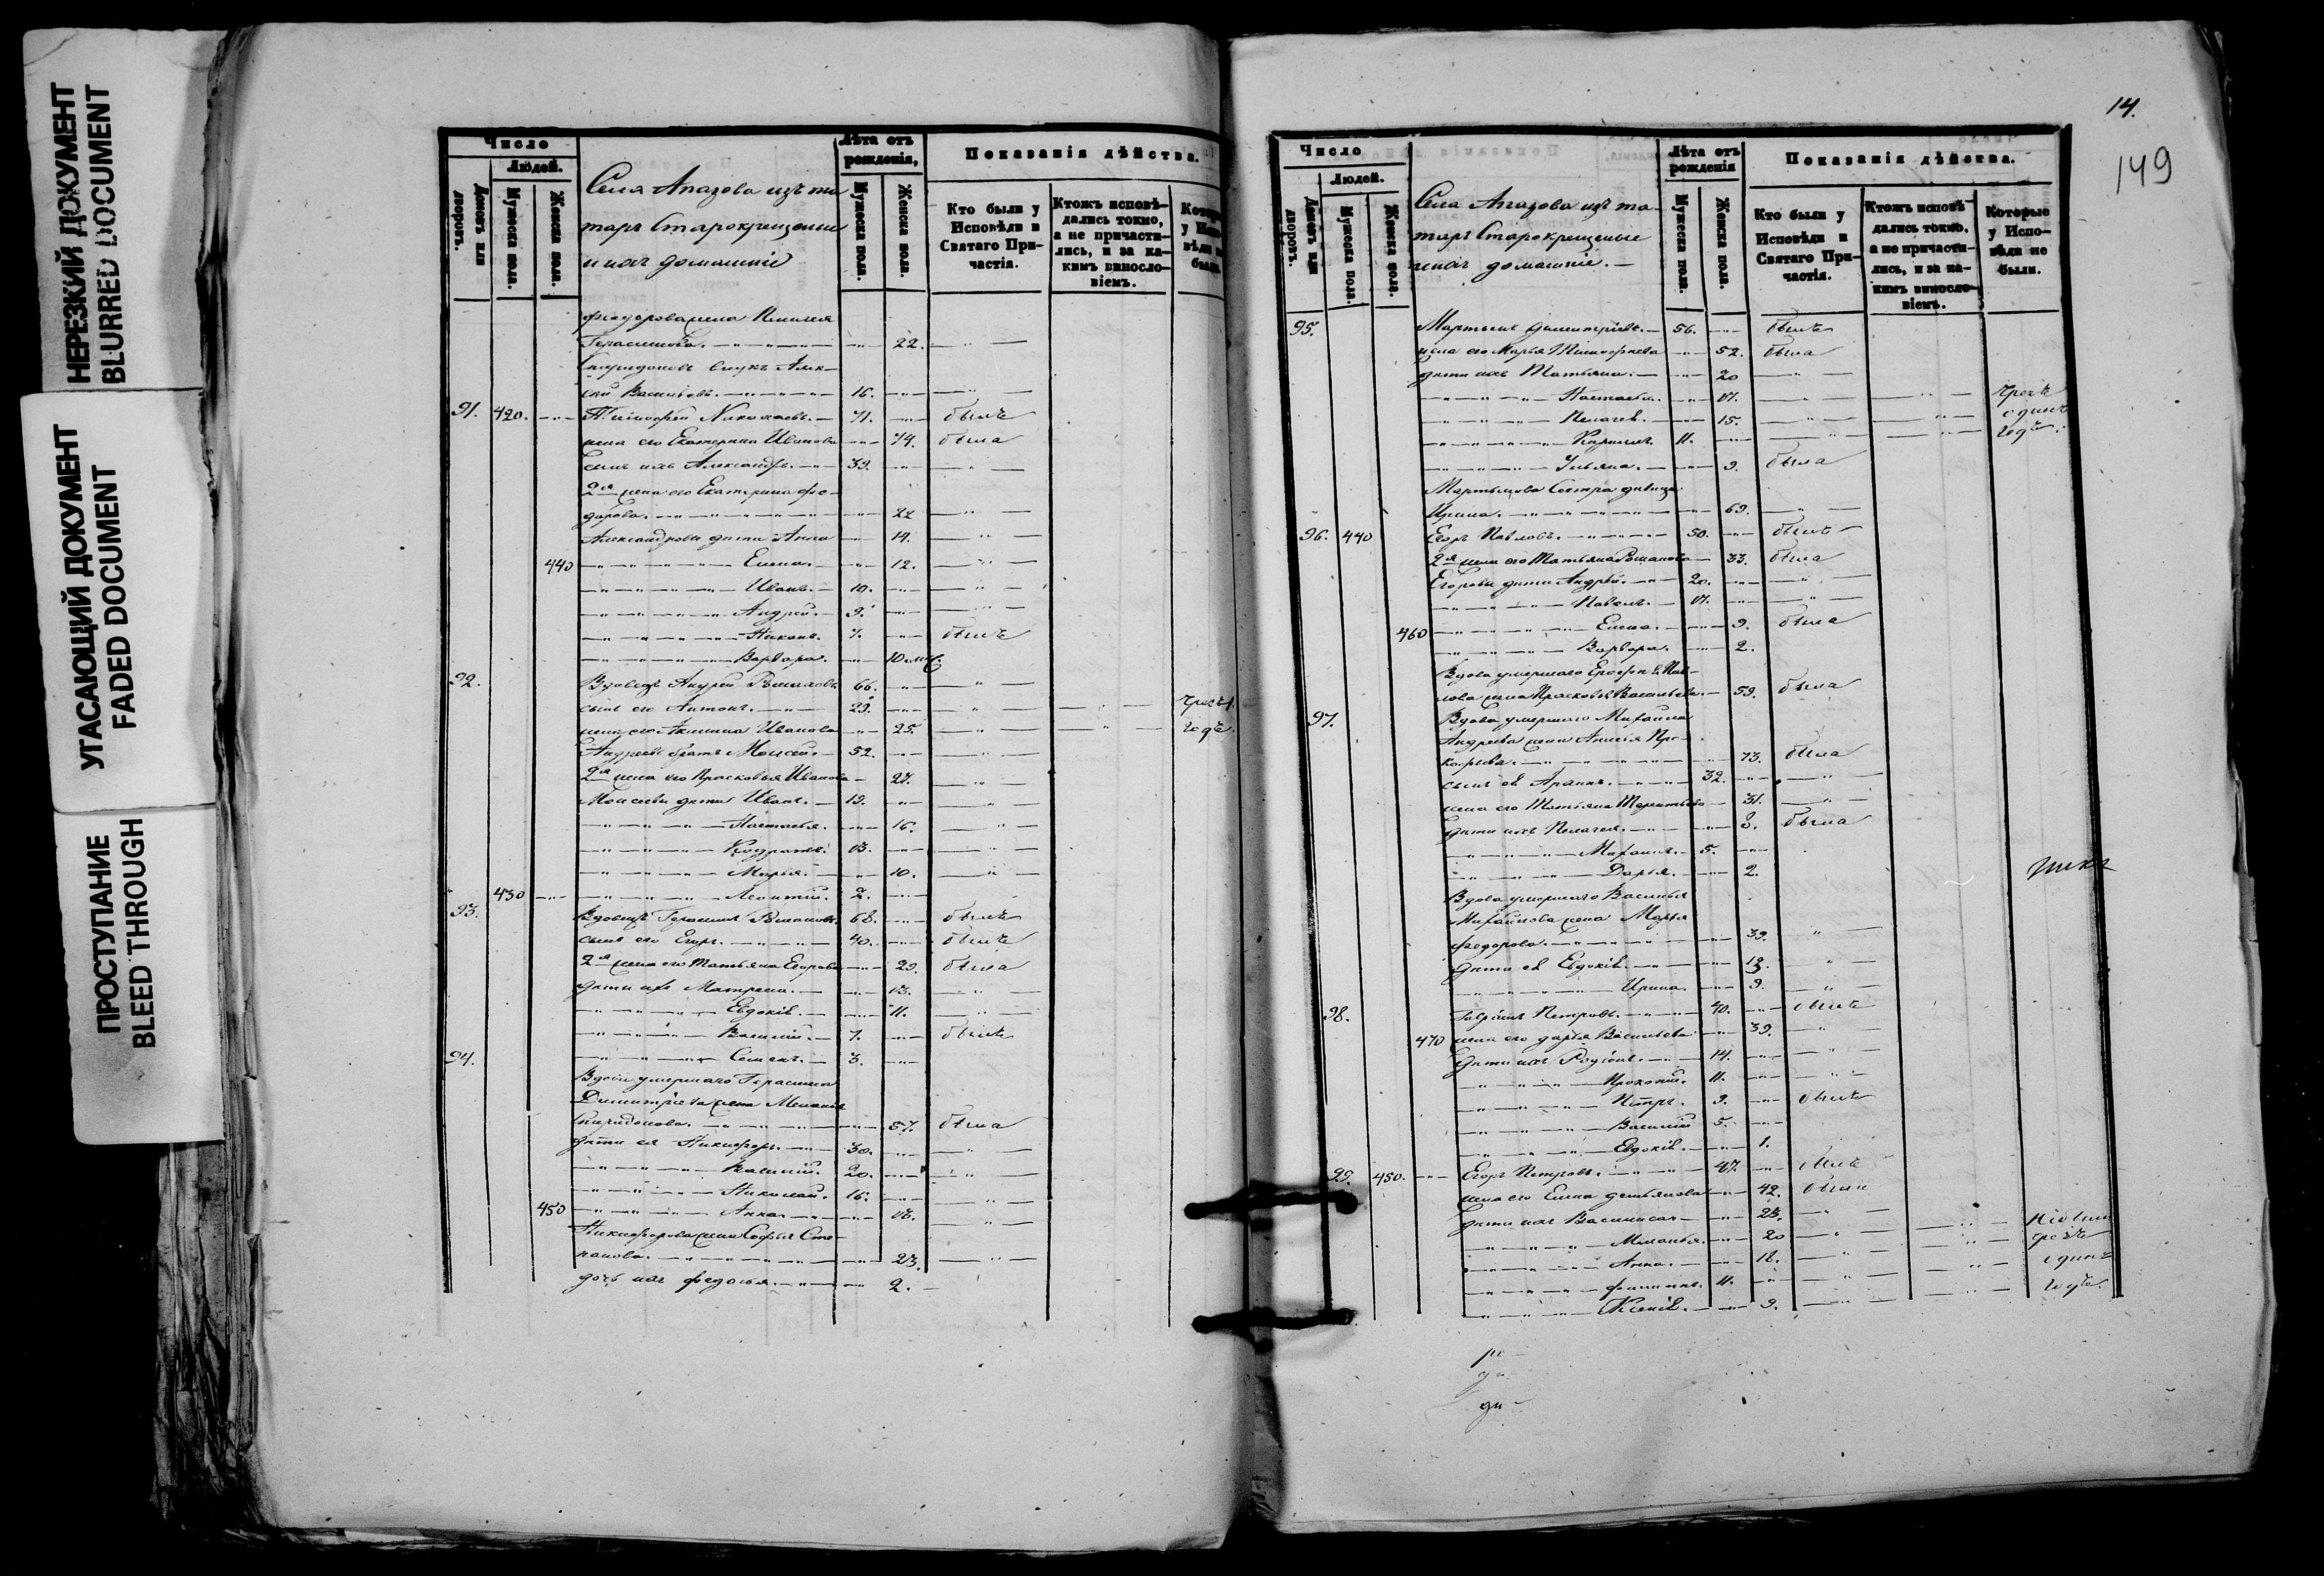 НЕРЕЗКИЙ ДОКУМЕНТ
BLURRED DOCUMENT
УГАСАЮЩИЙ ДОКУМЕНТ
FADED DOCUMENT
ПРОСТУПАНИЕ
BLEED THROUGH
Число
Людей.
Домовъ или дворовъ.
Мужеска пола.
Женска пола.
Села Апазова изъ та
таръ Старокрещеные
и ихъ домашніе
Лѣта отъ рожденія,
Мужеска пола.
Женска пола.
Показанія дѣйства.
Кто были у Исповѣди и Святаго Причастія.
Ктожъ исповѣдались токмо, а не причастились, и за какимъ винословіемъ.
Федорова жена Пелагея
Герасимова. 22.
Спиридоновъ внукъ Алек-
сѣй Васильевъ. 16.
91. 420. Тимофей Николаевъ. 71. былъ
жена его Екатерина Иванова 74. была
сынъ ихъ Александръ. 39.
2я жена его Екатерина Фе-
дорова. 22
Александровы дѣти Анна 14.
440 Елена. 12.
Иванъ. 10.
Андрей. 9.
Никонъ. 7. былъ
Варвара. 10 мѣс.
92. Вдовецъ Андрей 66.
сынъ его Антонъ. 29. чрезъ 1.
жена его Акилина Иванова 25. годъ.
Андреевъ братъ Моисей. 52.
2я жена его Прасковья Иванова 27.
Моисеевы дѣти Иванъ. 19.
Настасья. 16.
Кодратъ. 13.
Марья. 10.
430 Леонтій. 2.
93. Вдовецъ Герасимъ 68. былъ
сынъ его Егоръ. 40. былъ
2я жена его Татьяна Егорова 29. была
дѣти ихъ Матрена. 13.
Евдокія. 11.
Василій. 7. былъ
94. Семенъ. 3.
Вдова умершаго Герасима
Димитріева жена Меланія
Спиридонова. 57. была
дѣти ея Никифоръ. 30.
Василій. 20.
Николай. 16.
450 Анна. 13.
Никифорова жена Софья Сте-
панова. 23.
дочь ихъ Федосья. 2.
14.
149
Число
Людей.
Домовъ или дворовъ.
Мужеска пола.
Женска пола.
Села Апазова изъ та-
таръ Старокрещеные
и ихъ домашніе.
Лѣта отъ рожденія
Мужеска пола.
Женска пола.
Показанія дѣйства.
Кто были у Исповѣди и Святаго Причастія.
Ктожъ исповѣдались токмо, а не причастились, и за какимъ винословіемъ.
Которые у Исповѣди не были.
95. Мартынъ Димитріевъ. 56. былъ
жена его Марья Тимофеева 52. была
дѣти ихъ Татьяна. 20
Настасья. 17. чрезъ
Пелагея. 15. одинъ
Кирилъ. 11. годъ.
Ульяна. 9. была
Мартынова Сестра дѣвица
Ирина. 69.
96. 440 Егоръ Павловъ. 50. былъ
2я жена его Татьяна Романова 33. была
Егоровы дѣти Андрей. 20.
Павелъ. 17.
460 Елена. 9. была
Варвара. 2.
Вдова умершаго Ерофея Пав-
лова жена Прасковья Васильева. 59. была
97. Вдова умершаго Михаила
Андреева жена Анисья Про-
кофьева. 73. была
сынъ ея 32.
жена его Татьяна Терентьева 31.
дѣти ихъ Пелагея. 8. была
Михаилъ. 5.
Дарья. 2.
Вдова умершаго Василья
Михайлова жена Марья
Федорова. 39.
дѣти ея Евдокія. 12.
Ирина. 9.
98. Гаврилъ Петровъ. 40. былъ
470 жена его Дарья Васильева 39.
дѣти ихъ Родіонъ. 14.
Прокопій. 11.
Петръ. 9. былъ
Василій 5.
Евдокія. 1.
99. 450. Егоръ Петровъ. 47. былъ
жена его Елена Демьянова 42. была
дѣти ихъ Василиса 23.
Меланья. 20 чрезъ
Анна. 18. одинъ
Филипъ. 11. годъ.
Ксенія. 9.